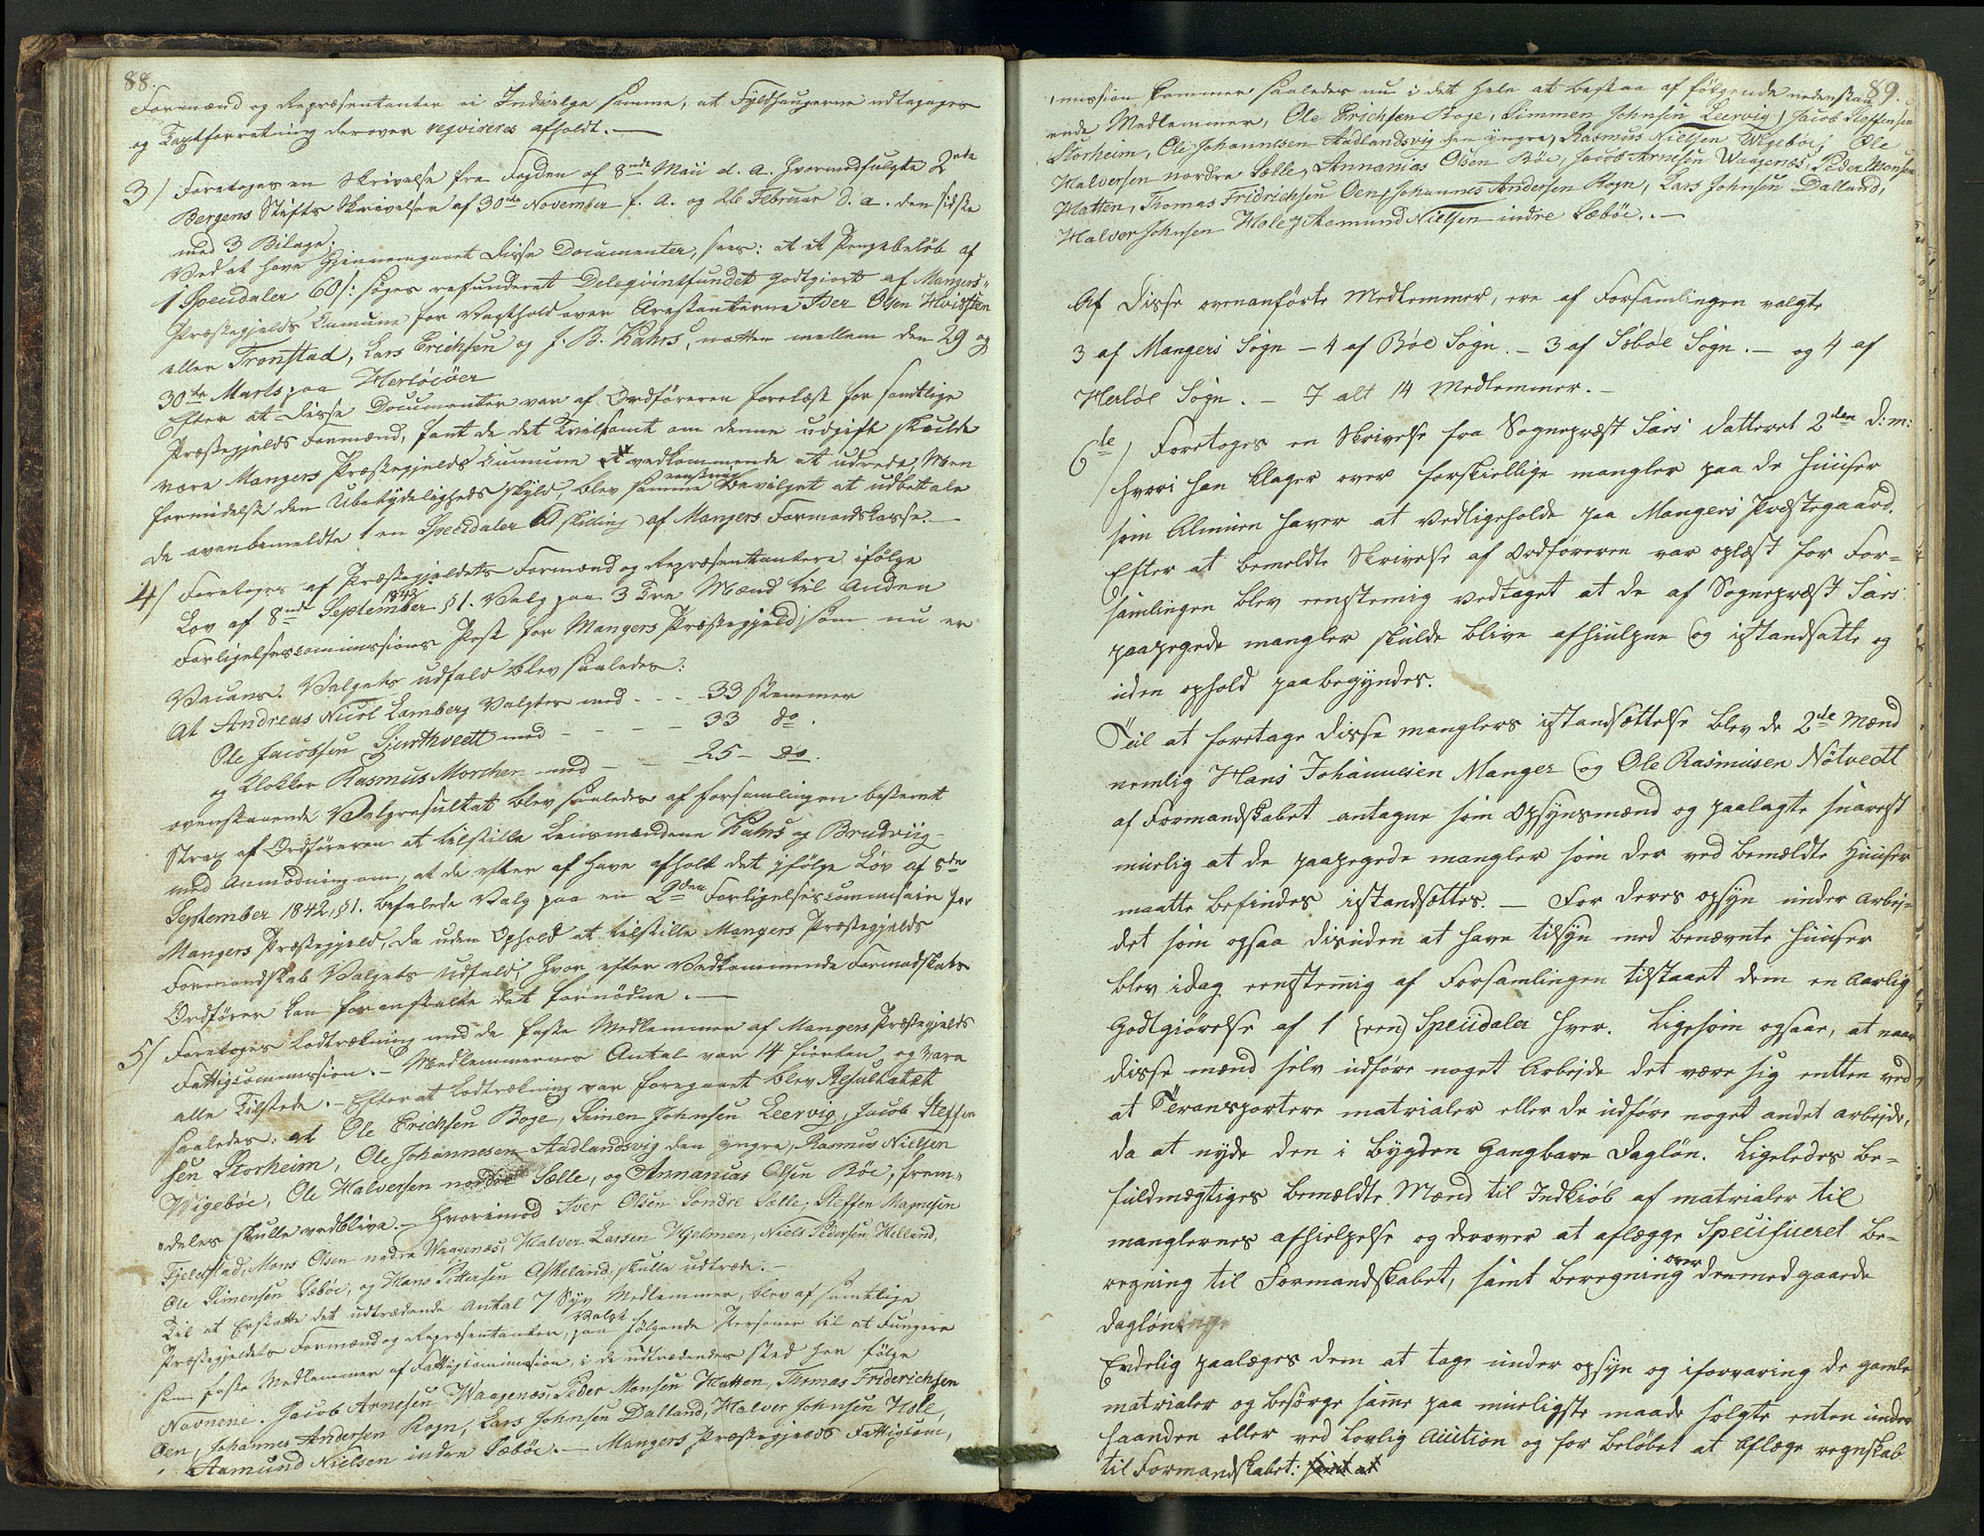 88.
Formænd og Repræsentanter ei Indvilge samme, at Fyldhaugerne udlægges
og Taxtforretning derover reqvireres afholdt. —
3/ Foretoges en Skrivelse fra Fogden af 8nde Maii d. A. hvormedfulgte 2nde
Bergens Stifts Skrivelser af 30te November f. A. og 26 Februar d. a. den sidste
med 3 Bilage.
Ved at have Gjennemgaaet disse Documenter, saaes: at et Pengebeløb af
1 Speciedaler 60/: søges refunderet Deleqvintfundet godtgiort af Mangers
Præstegjelds Comune for Vagthold over Arrestanterne Iver Olsen Hvidsten
eller Tronstad, Lars Erichsen og J. B. Kahrs, natten mellem den 29 og
30te Marts paa Herløeøer
Efter at disse Documenter var af Ordføreren forelæst for samtlige
Præstegjelds Formænd, fant de det Tvilsomt om denne udgift skulde
være Mangers Præstegjelds Cumune vedkommende at udrede, Men
formedelst den Ubetydeligheds skyld, blev samme eenstemig Bevilget at udbetale
de ovenbemeldte 1 en Speciedaler 60 skilling af Mangers Formandskasse. —
4/ Foretoges af Præstegjeldets Formænd og Repræsentantere ifølge
Lov af 8nde September 1842 §1. Valg paa 3 Tre Mænd til Anden
Forligelsescommissions Post for Mangers Præstegjeld, som nu er
Vacans. Valgets udfald blev saaledes:
At Andreas Nicol Lamberg Valgtes med - - - 33 stemmer
Ole Jacobsen Sjurthvedt med - - - - 33 do.
og Klokker Rasmus Morcher med - - 25 - do.
ovenstaaende Valgresultat blev saaledes af forsamlingen bestemt
Strax af Ordføreren at tilstille Lensmændene Kahrs og Brudviig
med Anmodning om, at de efter af have afholt det ifølge Lov af 8de
September 1842, §1. befalede Valg paa en 2den Forligelsescommisair for
Mangers Præstegjeld, da uden Ophold at tilstille Mangers Præstegjelds
Formandskab Valgets Udfald, hvor efter Vedkommende Formandskabs
Ordfører kan foranstalte det fornødne. —
5/ Foretoges Lodtrækning med de faste Medlemmer af Mangers Præstegjelds
Fattigcommission. — Medlemmernes Antal var 14 fiorten, og Vare
alle Tilstede. — Efter at Lodtrækning var foregaaet blev Resultatet
saaledes: at Ole Erichsen Boge, Simen Johnsen Leervig, Jacob Steffen
sen Storheim, Ole Johannesen Aadlandsvig den yngre, Rasmus Nielsen
Wigebøe, Ole Halversen nordre Sælle, og Annanias Olsen Bøe, frem=
=deles skulle vedblive. — Hvorimod Iver Olsen Søndre Sælle, Steffen Magnesen
Fjeldstad, Mons Olsen nedre Waagenæs, Halver Larsen Hjelmen, Niels Pedersen Helland,
Ole Simensen Sæbøe, og Hans Pettersen Askeland, skulle udtræde. —
Til at Erstatte det udtrædende antal 7 Syv Medlemmer, blev af samtlige
Præstegjeldets Formænd og Repræsentanter, Valgt paa følgende Personer til at Fungere
som faste Medlemmer af Fattigcommission, i de udtrædendes sted her følge
Navnene. Jacob Arnesen Waagenæs, Peder Monsen Hatten, Thomas Friderichsen
Oen, Johannes Andersen Rogn, Lars Johnsen Dalland, Halver Johnsen Hole,
Aamund Nielsen indre Sæbøe. — Mangers Præstegjelds Fattigcom,
89.
mission kommer saaledes nu i det Hele at bestaa af følgende nedenstaa
ende Medlemmer, Ole Erichsen Boge, Simmen Johnsen Leervig, Jacob Steffensen
Storheim, Ole Johannesen Aadlandsvig den yngre, Rasmus Nielsen Wigebøe, Ole
Halversen nordre Sælle, Annanias Olsen Bøe, Jacob Arnesen Waagenæs, Peder Monsen
Hatten, Thomas Fridrichsen Oen, Johannes Andersen Rogn, Lars Johnsen Dalland,
Halver Johnsen Hole, Aamund Nielsen indre Sæbøe. —
Af disse ovenanførte Medlemmer, ere af Forsamlingen valgte
3 af Mangers Sogn — 4 af Bøe Sogn. — 3 af Sæbøe Sogn. — og 4 af
Herløe Sogn. — I alt 14 Medlemmer. —
6te/ Foretoges en Skrivelse fra Sognepræst Sars datteret 2den d: m:
hvori han klager over forskiellige mangler paa de Huuser
som Almuen haver at vedligeholde paa Mangers Præstegaard.
Efter at bemeldte Skrivelse af Ordføreren var oplæst for For=
samlingen blev eenstemig vedtaget at de af Sognepræst Sars
paapegede mangler skulde blive afhiulpne og istandsatte og
uden ophold paabegyndes.
Teil at foretage disse manglers istandsættelse blev de 2de Mænd
nemlig Hans Johannesen Manger og Ole Rasmusen Nøtvedt
af Formandskabet antagne som Opsynsmænd og paalagte snarest
muelig at de paapegede mangler som der ved bemældte Huuser
maatte befindes istandsættes. — For deres opsyn under Arbej=
det som ogsaa disuden at have tilsyn med benævnte Huuser
blev idag eenstemig af Forsamlingen tilstaaet dem en Aarlig
Godtgiørelse af 1 (een) Speciedaler hver. Ligesom ogsaa, at naar
disse mænd selv udføre noget Arbejde det være sig entten ved
at Transportere matrialer eller de udføre noget andet arbejde,
da at nyde den i Bygden Gangbare Dagløn. Ligeledes be=
fuldmægtiges bemældte Mænd til Indkiøb af matrialer til
manglernes afhielpelse og derover at aflægge Specificeret be=
regning til Formandskabet, samt beregning over denmedgaaede
dagløn
Endelig paalæges dem at tage under opsyn og iforvaring de gamle
matrialer og besørge samme paa mueligste maade solgte enten under
haanden eller ved lovlig Auction og for beløbet at aflæge regnskab
til Formandskabet: samt at